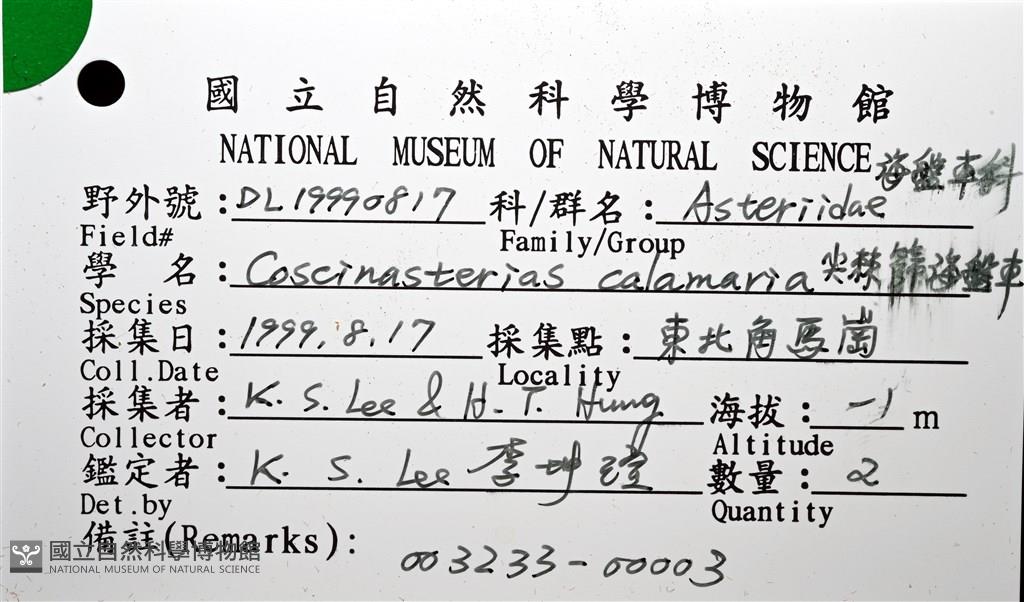 國立自然科學博物館
NATIONAL MUSEUM OF NATURAL SCIENCE 海盤車科
野外號：DL19990817 科/群名：Asteriidae
Field# Family/Group
學 名：Coscinasterias calamaria 尖棘篩海盤車
Species
採集日：1999.8.17 採集點：東北角馬崗
Coll.Date Locality
採集者：K. S. Lee & H. T. Hung 海拔：-1 m
Collector Altitude
鑑定者：K. S. Lee 李坤瑄 數量：2
Det.by Quantity
備註(Remarks)：
003233-00003
國立自然科學博物館
NATIONAL MUSEUM OF NATURAL SCIENCE